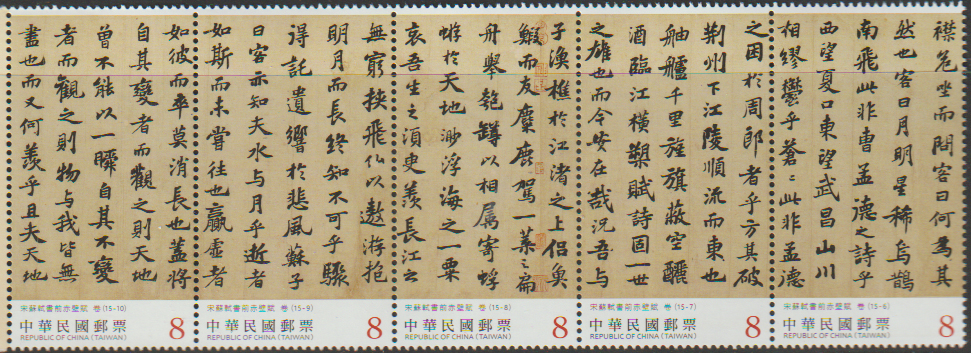 襟危坐而問客曰何為其
然也客曰月明星稀烏鵲
南飛此非曹孟德之詩乎
西望夏口東望武昌山川
相繆鬱乎蒼〻此非孟德
之困於周郎者乎方其破
荊州下江陵順流而東也
舳艫千里旌旗蔽空釃
酒臨江橫槊賦詩固一世
之雄也而今安在哉況吾与
子漁樵於江渚之上侶魚
鰕而友麋鹿駕一葉之扁
舟舉匏罇以相屬寄蜉
蝣於天地渺浮海之一粟
哀吾生之須臾羨長江之
無窮挾飛仙以遨游抱
明月而長終知不可乎驟
得託遺響於悲風蘇子
曰客亦知夫水与月乎逝者
如斯而未嘗往也贏虛者
如彼而卒莫消長也蓋將
自其變者而觀之則天地
曾不能以一瞬自其不變
者而觀之則物与我皆無
盡也而又何羨乎且夫天地
宋蘇軾書前赤壁賦 卷(15-10)
中華民國郵票 8
REPUBLIC OF CHINA (TAIWAN)
宋蘇軾書前赤壁賦 卷(15-9)
中華民國郵票 8
REPUBLIC OF CHINA (TAIWAN)
宋蘇軾書前赤壁賦 卷(15-8)
中華民國郵票 8
REPUBLIC OF CHINA (TAIWAN)
宋蘇軾書前赤壁賦 卷(15-7)
中華民國郵票 8
REPUBLIC OF CHINA (TAIWAN)
宋蘇軾書前赤壁賦 卷(15-6)
中華民國郵票 8
REPUBLIC OF CHINA (TAIWAN)